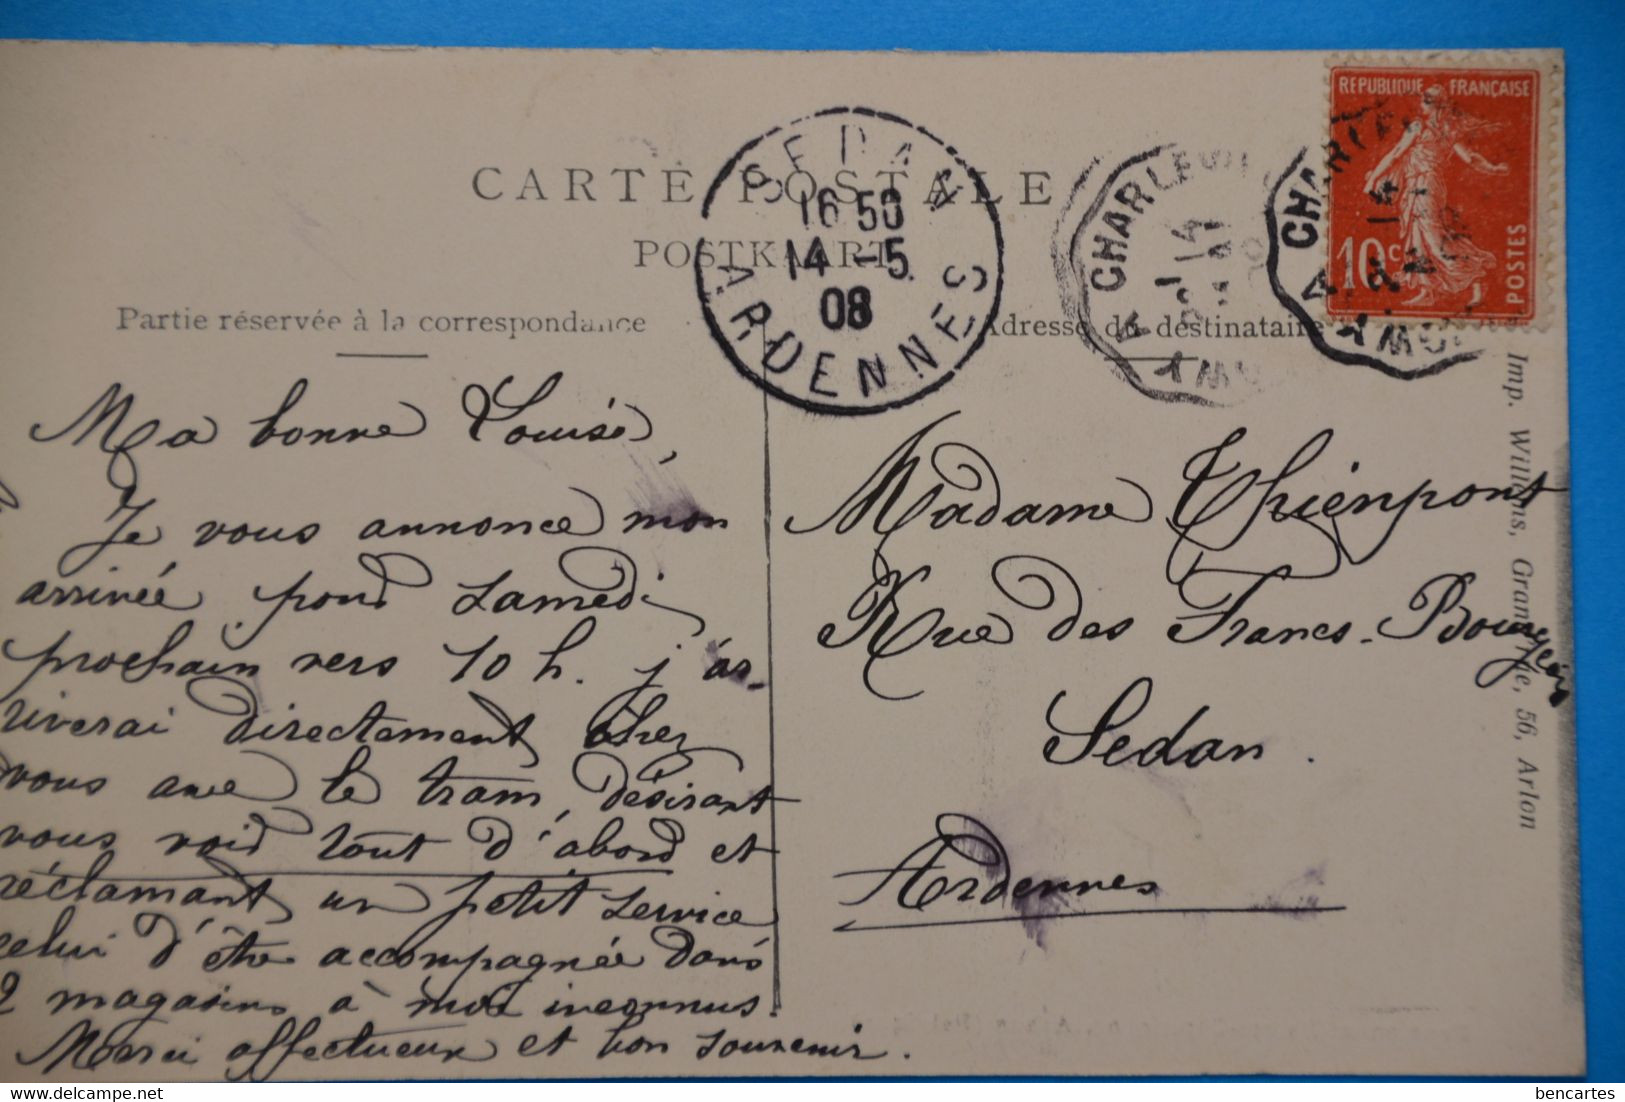 CARTE POSTALE
POSTKAART
Partie réservée à la correspondance
Adresse du destinataire
REPUBLIQUE FRANÇAISE
10c
POSTES
SEDAN
16 50
14 - 5
08
ARDENNES
CHARLEV
14
A
CHARLE
14
A
Ma bonne Louise,
Je vous annonce mon
arrivée pour samedi
prochain vers 10 h. j'ar-
riverai directement chez
vous avec le tram, désirant
vous voir tout d'abord et
réclamant un petit service
celui d'être accompagnée dans
2 magasins à moi inconnus.
Merci affectueux et bon souvenir.
Madame Thienpont
Rue des Francs-Bourgeois
Sedan.
Ardennes
Imp. Willems, Grand'Rue, 56, Arlon
bencartes